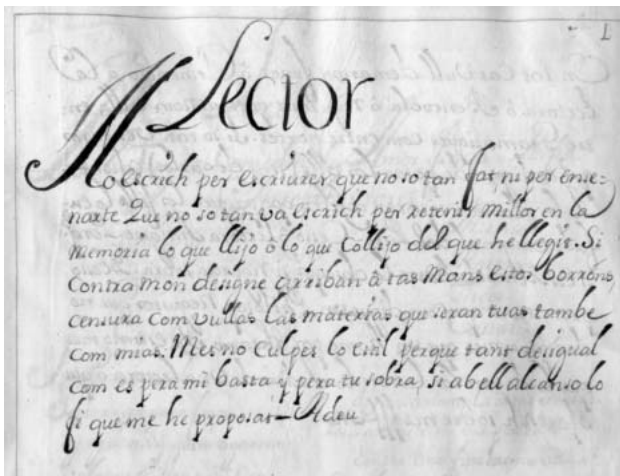 1
Al Lector
No escrich per escriurer que no so tan fat, ni per ense-
ñarte Qui no so tan va escrich per retenir millor en la
Memoria lo que llijo ô lo que Collijo del que he llegit. Si
Contra mon designe arriban â tas Mans estos borrons,
censura Com vullas las materias que seran tuas tambe
com mias. Mes no Culpes lo estil perque tant desigual
com es pera mi basta y pera tu sobra, si abell alcanso lo
fi que me he proposat = Adeu